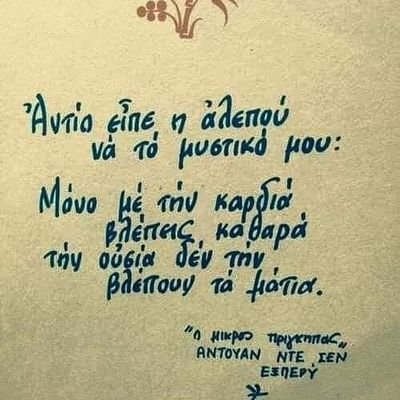 Ἀντίο εἶπε η ἀλεπού
νά τό μυστικό μου:
Μόνο μέ τήν καρδιά
βλέπεις καθαρά
τήν οὐσία δέν τήν
βλέπουν τά μάτια.
"Ο ΜΙΚΡΟΣ ΠΡΙΓΚΗΠΑΣ„
ΑΝΤΟΥΑΝ ΝΤΕ ΣΕΝ
ΕΞΠΕΡΥ